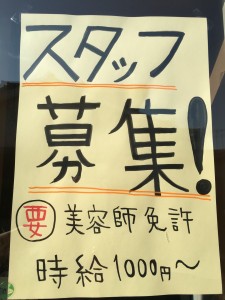 スタッフ
募集!
要 美容師免許
時給1000円〜